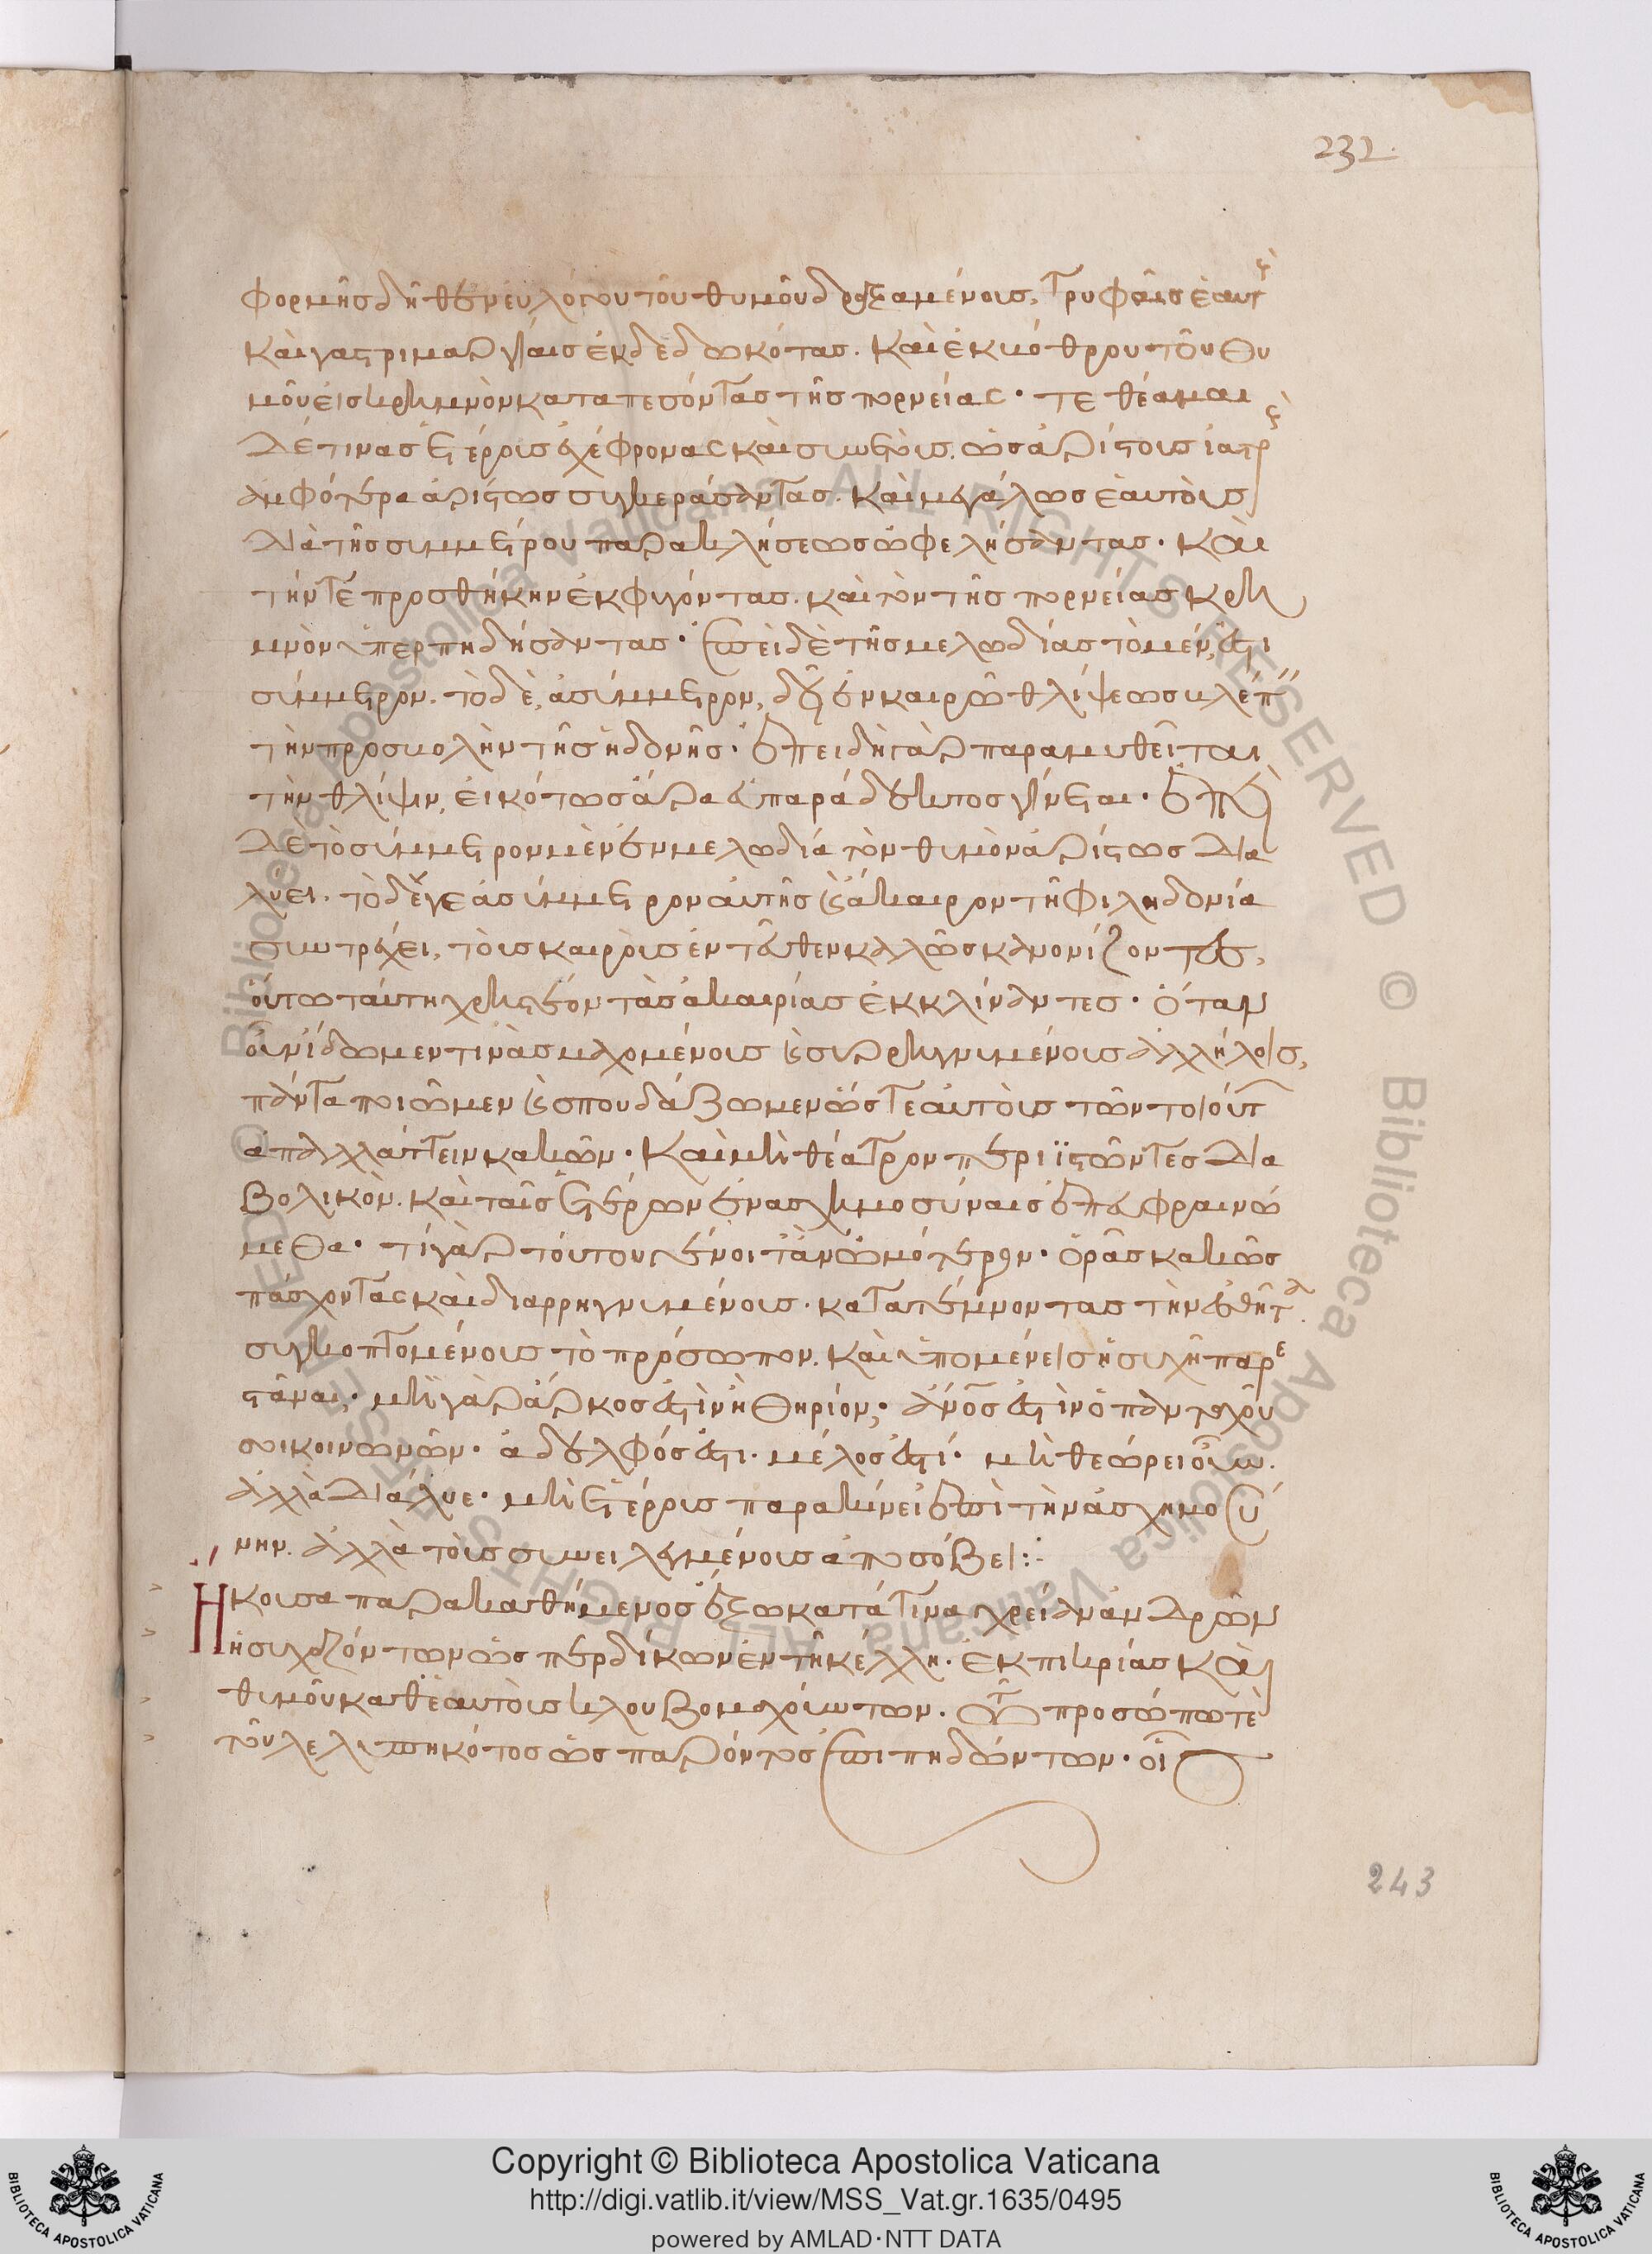 232.
φορμῆς δῆθεν εὐλόγου τοῦ θυμοῦ δραξαμένους, τρυφαῖς ἑαυτοὺς
καὶ γαστριμαργίαις ἐκδεδωκότας. καὶ ἐκ βόθρου τοῦ θυ
μοῦ εἰς κρημνὸν καταπεσόντας τῆς πορνείας· τεθέαμαι
δέ τινας ἑτέρους ἐχέφρονας καὶ συνετοὺς. ὡς ἀρίστους ἰατροὺς
ἀμφότερα ἀρίστως συγκεράσαντας. καὶ μεγάλως ἑαυτοὺς
διὰ τῆς συμμέτρου παρακλήσεως ὠφελήσαντας. καὶ
τήν τε προσθήκην ἐκφυγόντας. καὶ τὸν τῆς πορνείας κρη
μνὸν ὑπερπηδήσαντας· ἐπεὶ δὲ τῆς μελωδίας τὸ μέν, ἐστι
σύμμετρον. τὸ δὲ, ἀσύμμετρον, ἐν καιρῶ θλίψεως βλέπ
τὴν προσβολὴν τῆς ἡδονῆς· ἐπειδὴ γὰρ παραμυθεῖται
τὴν θλίψιν, εἰκότως ἄρα εὐπαράδεκτος γίνεται·
δὲ τὸ σύμμετρον μὲν ἐν μελωδία τὸν θυμὸν ἀρίστως δια
λύει. τὸ δέ γε ἀσύμμετρον αὐτῆς καὶ ἄκαιρον τῆ φιληδονία
συντρέχει, τοὺς καιροὺς ἐντεῦθεν καλῶς κανονίζοντες,
οὕτω ταύτη χρηστέον τὰς ἀκαιρίας ἐκκλίναντες. Ὅταν
οὖν ἴδωμεν τινὰς μαχομένους καὶ συρρηγνυμένους ἀλλήλοις,
πάντα ποιῶμεν καὶ σπουδάζωμεν ὥστε αὐτοὺς τῶν τοιούτ
ἀπαλλάττειν κακῶν. καὶ μὴ θέατρον περιϊστῶντες δια
βολικὸν. καὶ ταῖς ἑτέρων ἐνασχημοσύναις ἐπευφραινώ
μεθα. τί γὰρ τούτου γένοιτ' ἂν ὠμότερον. ὁρᾶς κακῶς
πάσχοντας καὶ διαρρηγνυμένους. κατατέμνοντας τὴν ἐσθῆτα.
συγκοπτομένους τὸ πρόσωπον. καὶ ὑπομένεις ἡσυχῆ παρε
στᾶναι. μὴ γὰρ ἄρκος ἐστὶν ἢ θηρίον; ἄνος ἐστὶν ὁ πανταχοῦ
σοι κοινωνῶν. ἀδελφός ἐστι. μέλος ἐστί. μὴ θεώρει οὖν.
ἀλλὰ διάλυε. μὴ ἑτέρους παρακίνει ἐπὶ τὴν ἀσχημοσύ
νην. ἀλλὰ τοὺς συνειλεγμένους ἀποσόβει:·
Ἤκουσα παρακαθήμενος ἔξω κατά τινα χρείαν ἀνδρῶν
ἡσυχαζόντων ὡς περδίκων ἐν τῆ κέλλη. ἐκ πικρίας καὶ
θυμοῦ καθ' ἑαυτοὺς κλουβομαχούντων. τῶ προσώπω τὲ
τοῦ λελυπηκότος ὡς παρόντος ἐπιπηδώντων. οἷς
243
Copyright © Biblioteca Apostolica Vaticana
http://digi.vatlib.it/view/MSS_Vat.gr.1635/0495
powered by AMLAD·NTT DATA